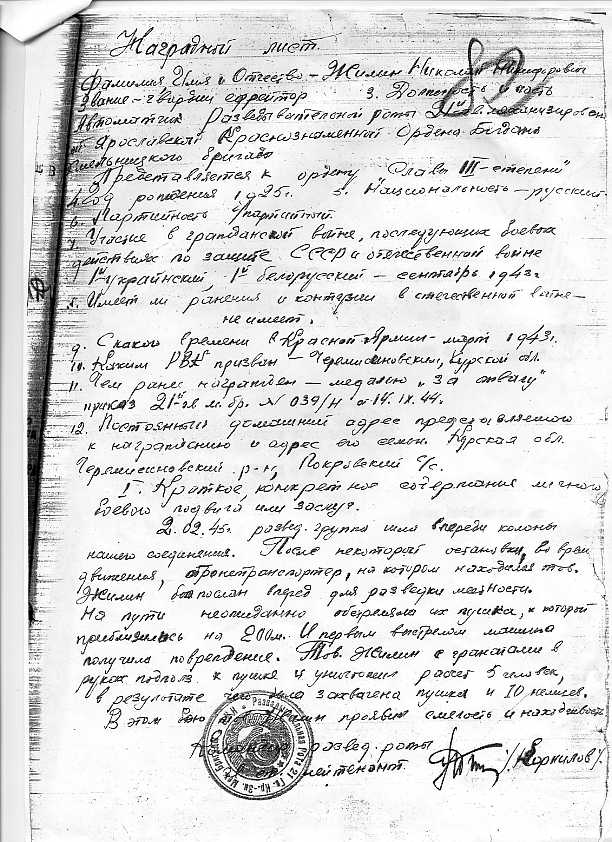 Наградной лист.
Фамилия, Имя и Отчество – Жилин Николай Никифорович
Звание – гвардии ефрейтор 3. Должность и часть
Автоматчик Разведывательной роты 21й гв. механизирован
ной Ярославской Краснознаменной Ордена Богдана
Хмельницкого бригады
Представляется к ордену „Славы III-степени"
4. Год рождения 1925г. 5. Национальность – русский
6. Партийность
7. Участие в гражданской войне, последующих боевых
действиях по защите СССР и отечественной войне
1й украинский, 1й белорусский – сентябрь 1943г
8. Имеет ли ранения и контузии в отечественной войне –
не имеет.
9. С какого времени в Красной Армии – март 1943г.
10. Каким РВК призван – Черемисиновским, Курской обл.
11. Чем ранее награжден – медалью „За отвагу"
приказ 21й гв м. бр. N 039/н от 14.IX.44.
12. Постоянный домашний адрес представляемого
к награждению и адрес его семьи. Курская обл.
Черемисиновский р-н, Покровский с/с.
I. Краткое, конкретное содержание личного
боевого подвига или заслуг.
2.02.45г. развед. группа шла впереди колоны
нашего соединения. После некоторой остановки, во время
движения, бронетранспортер, на котором находился тов.
Жилин был послан вперед для разведки местности.
На пути неожиданно обстреляла их пушка, к которой
приблизились на 200м. И первым выстрелом машина
получила повреждение. Тов. Жилин с гранатами в
руках подполз к пушке и уничтожил расчет 5 человек,
в результате чего была захвачена пушка и 10 немцев.
В этом бою тов. Жилин проявил смелость и находчивость
Командир развед. роты
лейтенант /Корнилов/.
Разведывательная рота 21 Гв. Кр.-Зн.